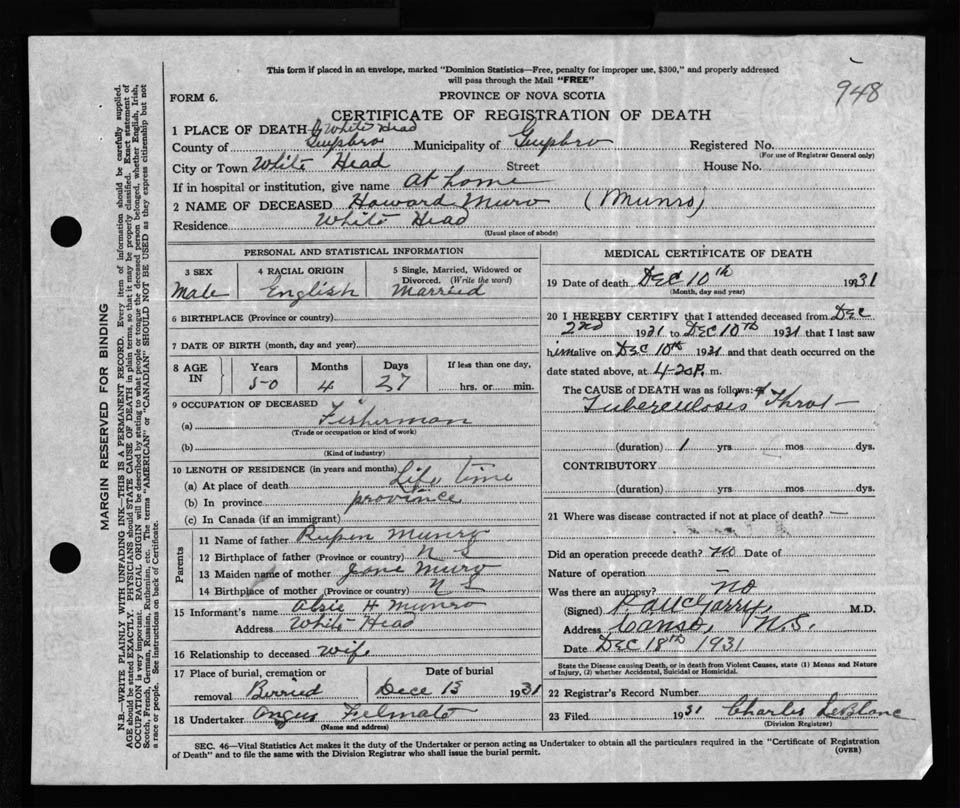 This form if placed in an envelope, marked "Dominion Statistics—Free, penalty for improper use, $300," and properly addressed
will pass through the Mail "FREE"
948
FORM 6.
PROVINCE OF NOVA SCOTIA
CERTIFICATE OF REGISTRATION OF DEATH
1 PLACE OF DEATH White Head
County of Guysbro Municipality of Guysbro Registered No.
(For use of Registrar General only)
City or Town White Head Street House No.
If in hospital or institution, give name at home
2 NAME OF DECEASED Howard Muro (Munro)
Residence White Head
(Usual place of abode)
PERSONAL AND STATISTICAL INFORMATION
3 SEX
Male
4 RACIAL ORIGIN
English
5 Single, Married, Widowed or
Divorced. (Write the word)
Married
6 BIRTHPLACE (Province or country)
7 DATE OF BIRTH (month, day and year)
8 AGE IN
Years Months Days If less than one day,
50 4 27 hrs. or min.
9 OCCUPATION OF DECEASED
(a) Fisherman
(Trade or occupation or kind of work)
(b)
(Kind of industry)
10 LENGTH OF RESIDENCE (in years and months)
(a) At place of death Life time
(b) In province province
(c) In Canada (if an immigrant)
Parents
11 Name of father Rupen Munro
12 Birthplace of father (Province or country) N S
13 Maiden name of mother Jane Muro
14 Birthplace of mother (Province or country) N S
15 Informant's name Alsie H Munro
Address White Head
16 Relationship to deceased wife
17 Place of burial, cremation or Date of burial
removal Berried Dece 13 1931
18 Undertaker Angus Felmate
(Name and address)
MEDICAL CERTIFICATE OF DEATH
19 Date of death DEC 10th 1931
(Month, day and year)
20 I HEREBY CERTIFY that I attended deceased from Dec
2nd 1931 to DEC 10th 1931 that I last saw
him alive on DEC 10th 1931 and that death occurred on the
date stated above, at 4-20 P. m.
The CAUSE of DEATH was as follows:
Tuberculosis of Throt
(duration) 1 yrs mos dys.
CONTRIBUTORY
(duration) yrs mos dys.
21 Where was disease contracted if not at place of death? —
Did an operation precede death? no Date of
Nature of operation —
Was there an autopsy? no
(Signed) M.D.
Address Canso, N.S.
Date DEC 18th 1931
State the Disease causing Death, or in death from Violent Causes, state (1) Means and Nature
of Injury, (2) whether Accidental, Suicidal or Homicidal.
22 Registrar's Record Number
23 Filed 1931 Charles LeBlanc
(Division Registrar)
SEC. 46—Vital Statistics Act makes it the duty of the Undertaker or person acting as Undertaker to obtain all the particulars required in the "Certificate of Registration
of Death" and to file the same with the Division Registrar who shall issue the burial permit.
(OVER)
MARGIN RESERVED FOR BINDING
N.B.—WRITE PLAINLY WITH UNFADING INK—THIS IS A PERMANENT RECORD. Every item of information should be carefully supplied.
AGE should be stated EXACTLY. PHYSICIANS should STATE CAUSE OF DEATH in plain terms, so that it may be properly classified. Exact statement of
OCCUPATION is very important. RACIAL ORIGIN will be described by stating to what people or tongue the deceased person belonged, whether English, Irish,
Scotch, French, German, Russian, Ruthenian, etc. The terms "AMERICAN" or "CANADIAN" SHOULD NOT BE USED as they express citizenship but not
a race or people. See instructions on back of Certificate.